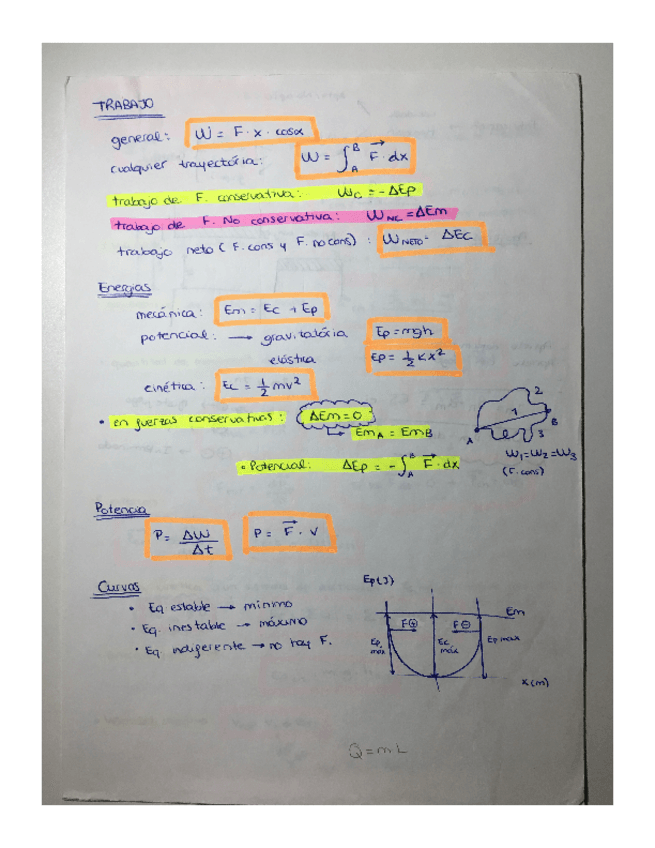 TRABAJO
general: W = F · x · cosα
cualquier trayectória: W = ∫_A^B F⃗ · dx
trabajo de F. conservativa: Wc = -ΔEp
trabajo de F. No conservativa: W_NC = ΔEm
trabajo neto (F. cons y F. no cons): W_NETO = ΔEc
Energías
mecánica: Em = Ec + Ep
potencial: → gravitatória Ep = mgh
elástica Ep = 1/2 Kx²
cinética: Ec = 1/2 mv²
• en fuerzas conservativas: ΔEm = 0
↳ Em_A = Em_B
A 1 2 3 B
W₁ = W₂ = W₃
(F. cons)
• Potencial: ΔEp = -∫_A^B F⃗ · dx
Potencia
P = ΔW/Δt P = F⃗ · v
Curvas
• Eq estable → mínimo
• Eq. inestable → máximo
• Eq. indiferente → no hay F.
Ep(J)
Em
F⊕ F⊖
Ep máx Ec máx Ep max
x(m)
Q = mL